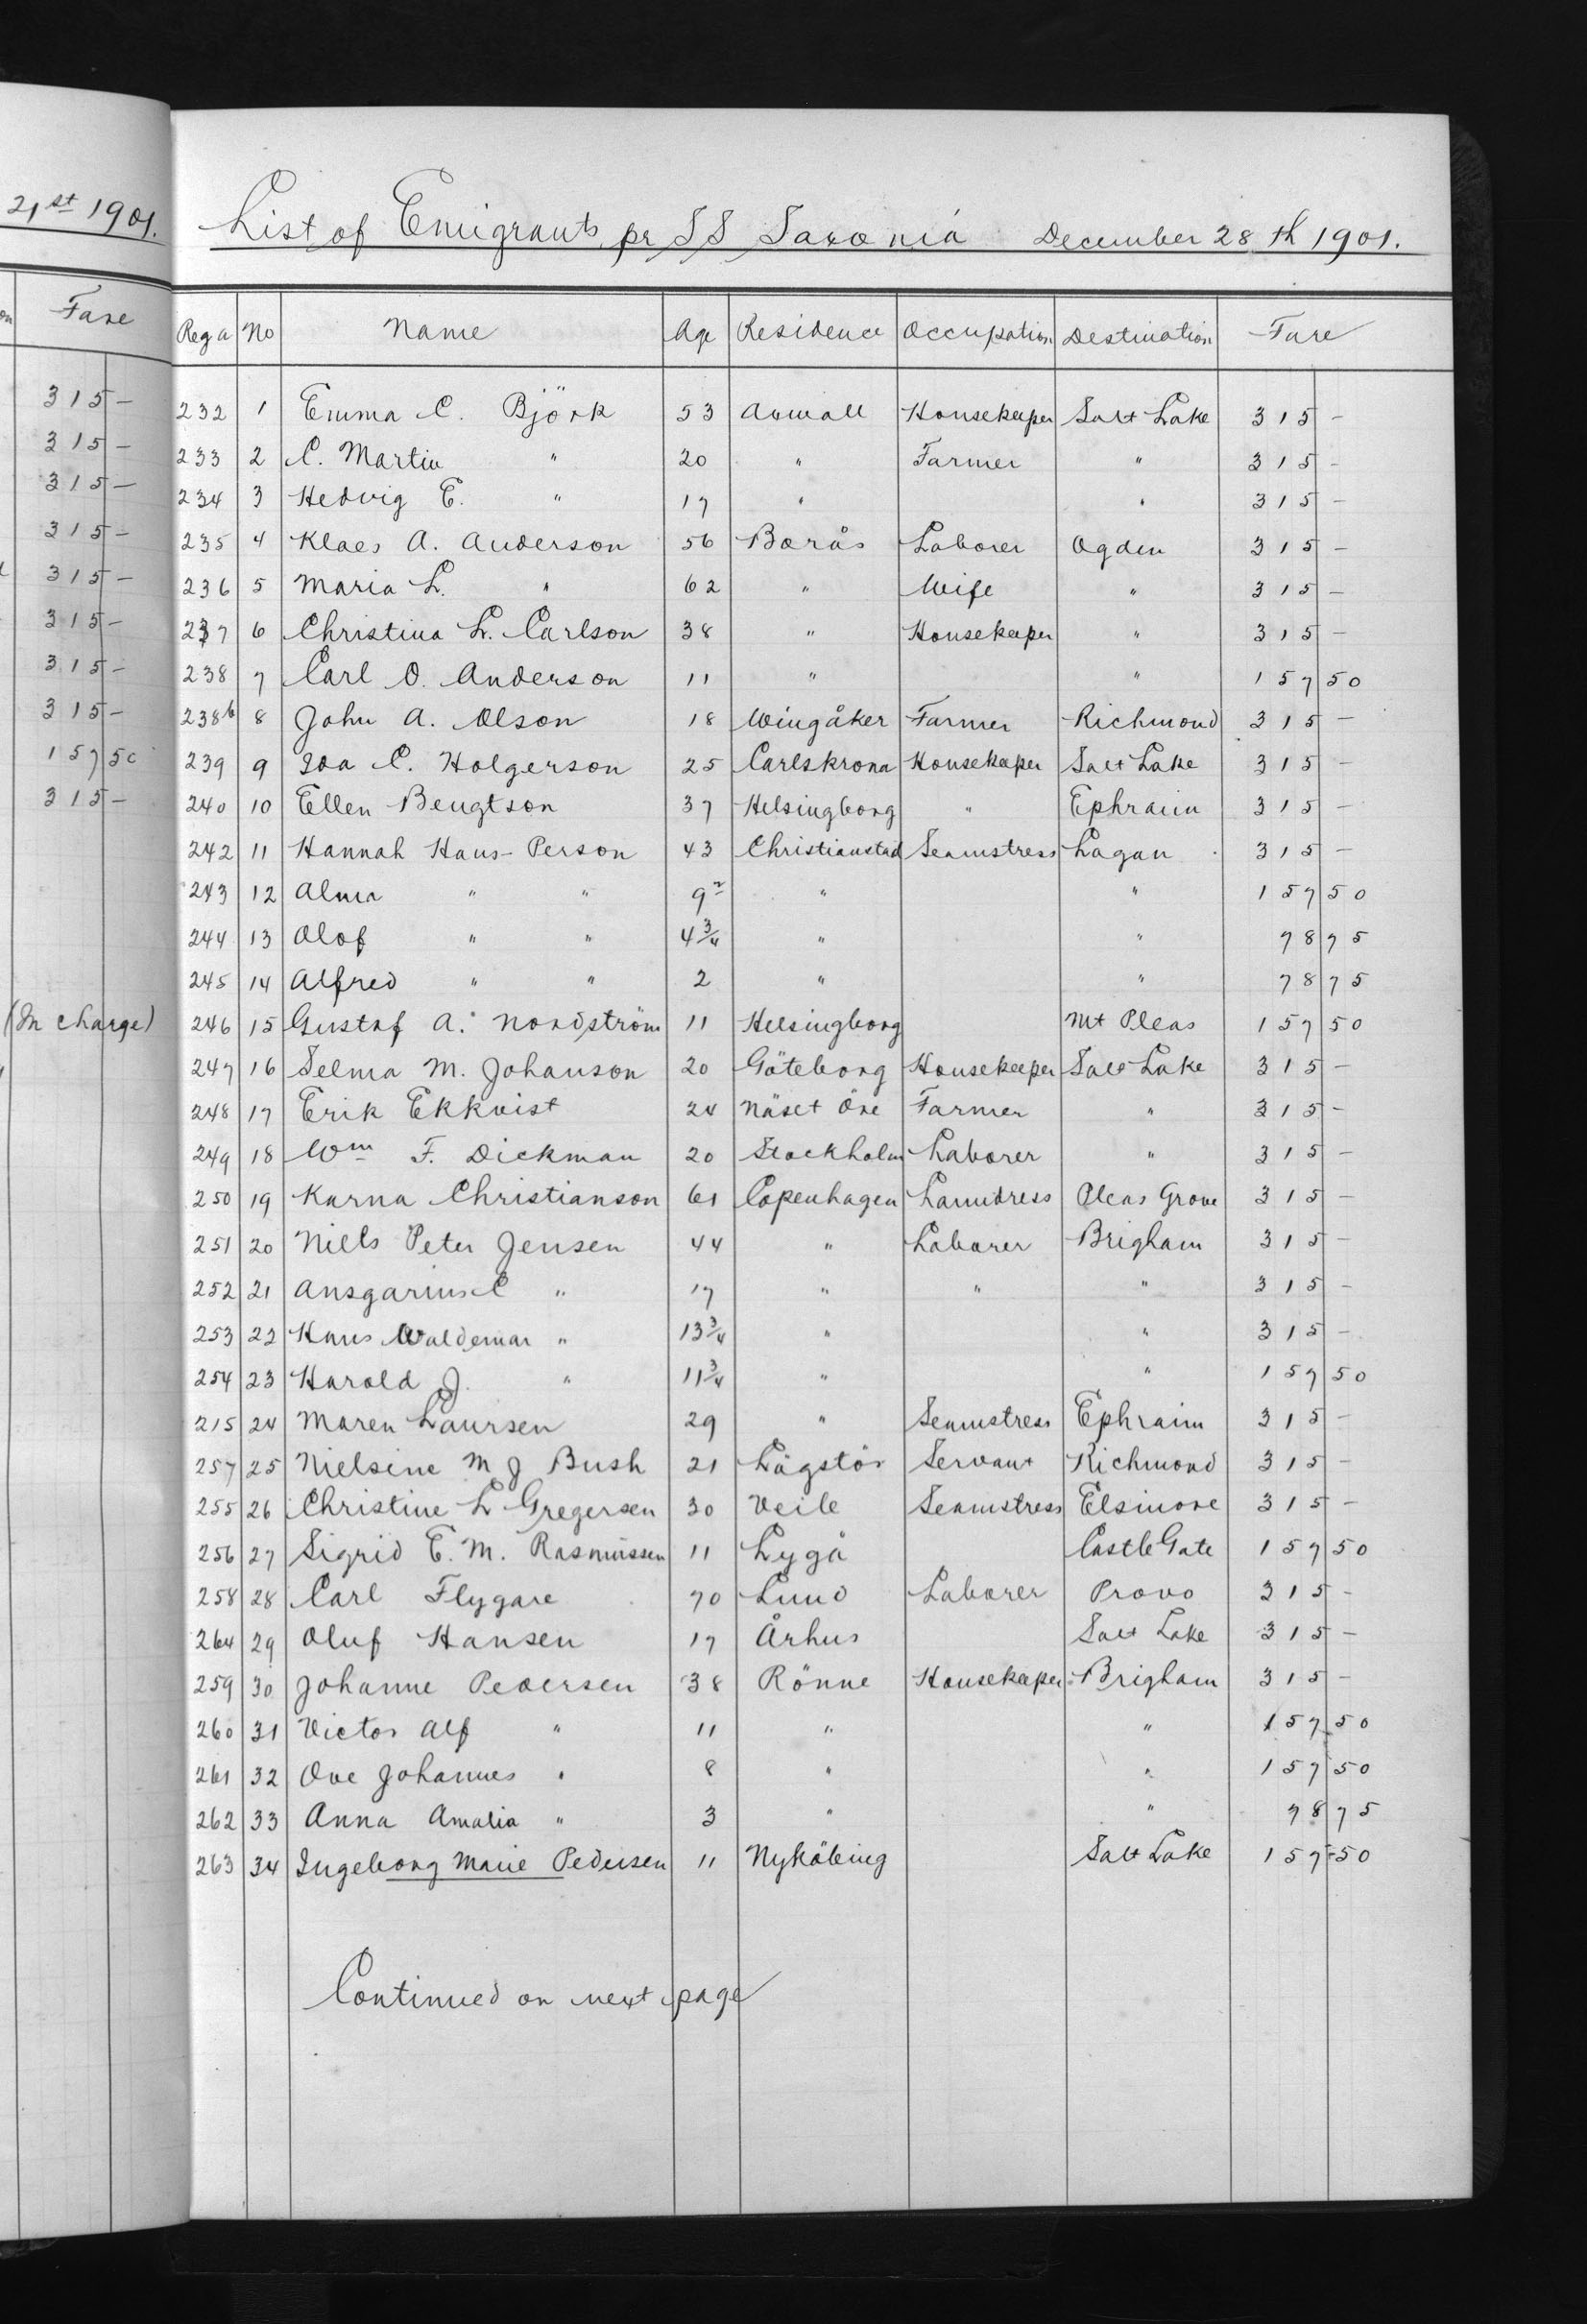 21st 1901.
Fare
315 –
315 –
315 –
315 –
315 –
315 –
315 –
315 –
157 50
315 –
(In charge)
List of Emigrants pr SS Saxonia December 28th 1901.
Reg a No Name Age Residence Occupation Destination Fare
232 1 Emma C. Björk 53 Housekeeper Salt Lake 315 –
233 2 C. Martin " 20 " Farmer " 315 –
234 3 Hedvig E. " 17 " " 315 –
235 4 Klaes A. Anderson 56 Borås Laborer Ogden 315 –
236 5 Maria L. " 62 " Wife " 315 –
237 6 Christina L. Carlson 38 " Housekeeper " 315 –
238 7 Carl O. Anderson 11 " " 157 50
238b 8 John A. Olson 18 Wingåker Farmer Richmond 315 –
239 9 Ida C. Holgerson 25 Carlskrona Housekeeper Salt Lake 315 –
240 10 Ellen Bengtson 37 Helsingborg " Ephraim 315 –
242 11 Hannah Hans-Person 43 Christianstad Seamstress Logan 315 –
243 12 Alma " " 9 " " 157 50
244 13 Olof " " 4 3/4 " " 78 75
245 14 Alfred " " 2 " " 78 75
246 15 Gustaf A. Nordström 11 Helsingborg Mt Pleas 157 50
247 16 Selma M. Johanson 20 Göteborg Housekeeper Salt Lake 315 –
248 17 Erik Ekkvist 24 Näset Öre Farmer " 315 –
249 18 Wm F. Dickman 20 Stockholm Laborer " 315 –
250 19 Karna Christianson 61 Copenhagen Laundress Pleas Grove 315 –
251 20 Niels Peter Jensen 44 " Laborer Brigham 315 –
252 21 Ansgarius C " 17 " " " 315 –
253 22 Hans Waldemar " 13 3/4 " " 315 –
254 23 Harold J. " 11 3/4 " " 157 50
215 24 Maren Laursen 29 " Seamstress Ephraim 315 –
257 25 Nielsine M J Bush 21 Lögstör Servant Richmond 315 –
255 26 Christine L Gregersen 30 Veile Seamstress Elsinore 315 –
256 27 Sigrid E. M. Rasmussen 11 Lygå Castle Gate 157 50
258 28 Carl Flygare 70 Lund Laborer Provo 315 –
264 29 Oluf Hansen 17 Århus Salt Lake 315 –
259 30 Johanne Pedersen 38 Rönne Housekeeper Brigham 315 –
260 31 Victor Alf " 11 " " 157 50
261 32 Ove Johannes " 8 " " 157 50
262 33 Anna Amalia " 3 " " 78 75
263 34 Ingeborg Marie Pedersen 11 Nyköbing Salt Lake 157 50
Continued on next page